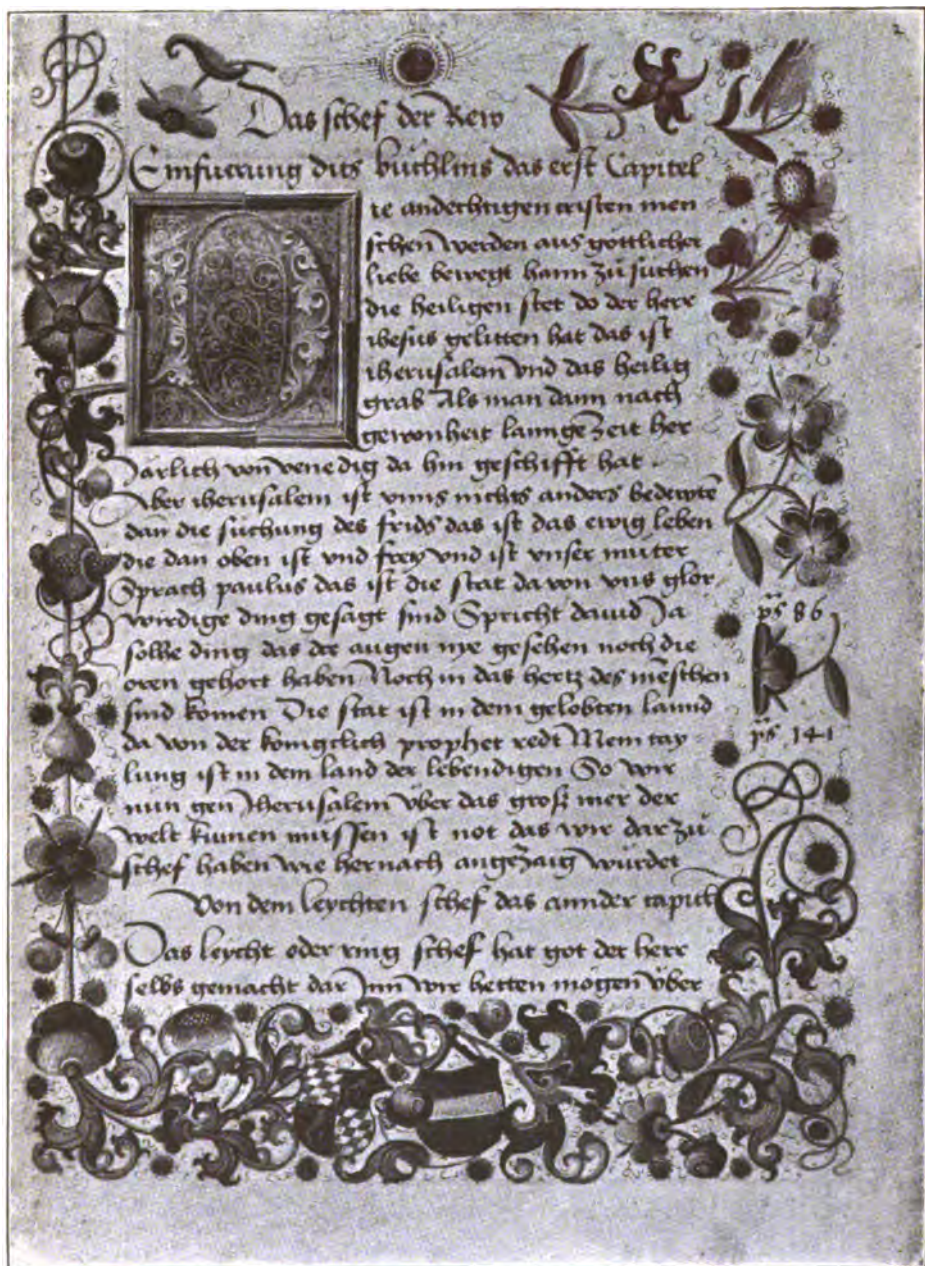 2
Das schef der Rew
Einfuerung dits büchlins das erst Capitel
Die andechtigen cristen men
schen werden aus göttlicher
liebe bewegt haim zů sůchen
die heiligen stet do der herr
ihesus gelitten hat das ist
iherusalem vnd das heilig
grab Als man dann nach
gewonheit lannge zeit her
Järlich von venedig da hin geschifft hat
Aber iherusalem ist vnns nichts anders bedewten
dan die suchung des frids das ist das ewig leben
die dan oben ist vnd frey vnd ist vnser můter
Sprach paulus das ist die stat da von vns glor
wirdige ding gesagt sind Spricht dauid Ja
solhe ding das die augen nye gesehen noch die
oren gehort haben Noch in das hertz des mēschen
sind komen Die stat ist in dem gelobten lannd
da von der königclich prophet redt Mein tay
lung ist in dem land der lebendigen So wir
nůn gen Iherusalem vber das groß mer der
welt kumen müssen ist not das wir dar zů
schef haben wie hernach angezaig würdet
Von dem leychten schef das annder capitl
Das leycht oder ring schef hat got der herr
selbs gemacht dar Jnn wir hetten mögen über
ps 86
ps 141